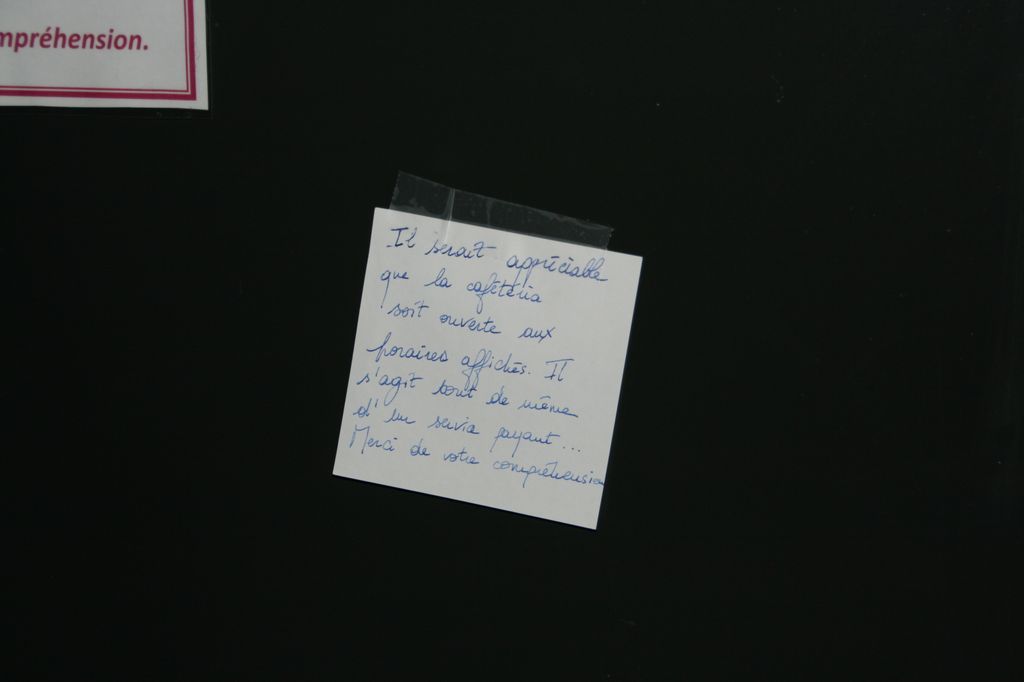 mpréhension.
Il serait appréciable
que la cafétéria
soit ouverte aux
horaires affichés. Il
s'agit tout de même
d'un service payant...
Merci de votre compréhension